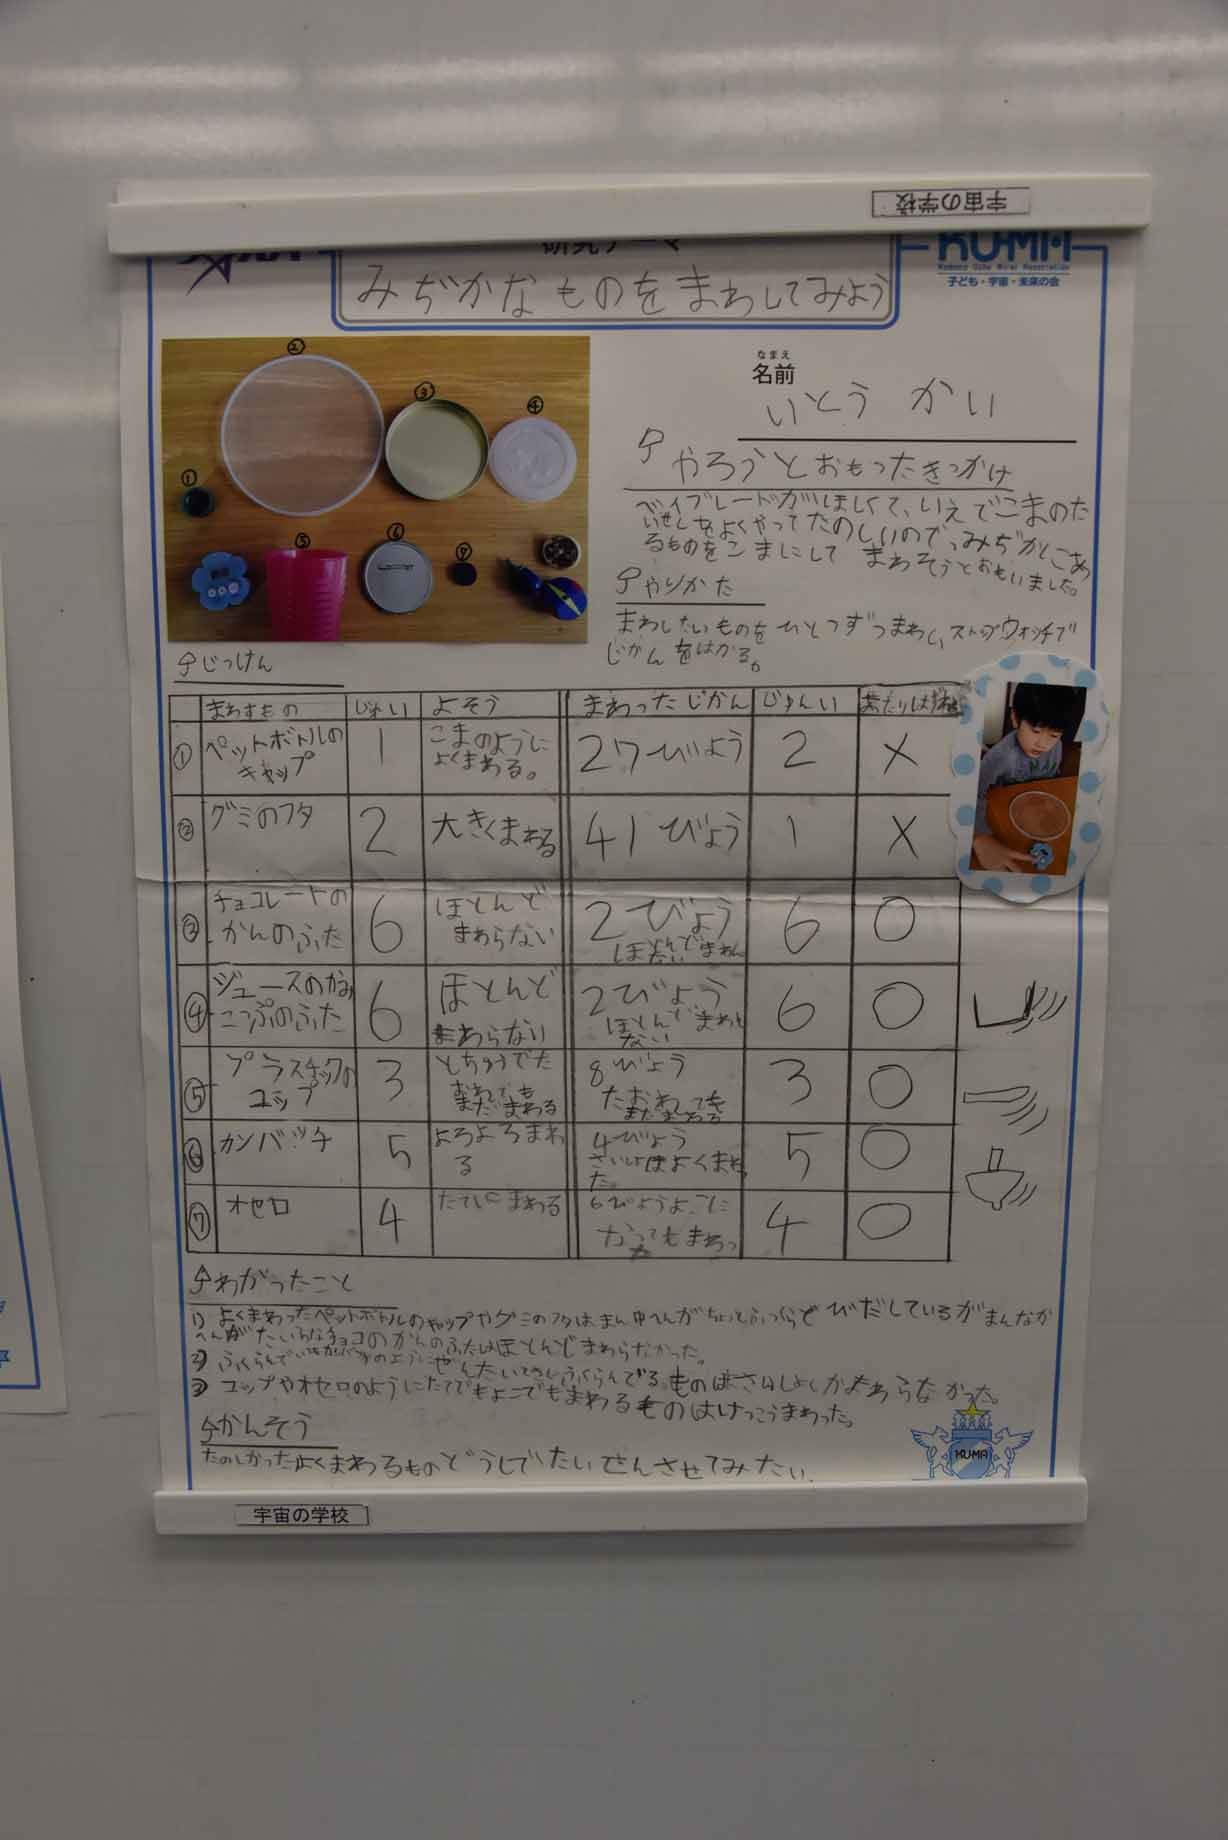 宇宙の学校
研究テーマ
KU-MA
子ども・宇宙・未来の会
みぢかなものをまわしてみよう
なまえ
名前
いとう かい
やろうとおもったきっかけ
ベイブレードがほしくて、いえでこまのた
いせんをよくやってたのしいので、みぢかにあ
るものをこまにして まわそうとおもいました。
やりかた
まわしたいものをひとつずつまわし、ストップウォッチで
じかんをはかる。
① ② ③ ④ ⑤ ⑥ ⑦
じっけん
まわすもの じゅんい よそう まわったじかん じゅんい あたりはずれ
① ペットボトルの キャップ 1 こまのように よくまわる。 27びょう 2 ×
② グミのフタ 2 大きくまわる 41びょう 1 ×
③ チョコレートの かんのふた 6 ほとんど まわらない 2びょう 6 ○
④ ジュースのかみ こっぷのふた 6 ほとんど まわらない 2びょう ほとんどまわら ない 6 ○
⑤ プラスチックの コップ 3 とちゅうでた おれても まだまわる 8びょう たおれても まだまわる 3 ○
⑥ カンバッチ 5 よろよろまわ る 4びょう さいしょはよくまわっ た 5 ○
⑦ オセロ 4 たてにまわる 6びょうよこに なってもまわっ た 4 ○
わかったこと
1) よくまわったペットボトルのキャップやグミのフタはまんなかへんがちょっとふっくらと
へんがたいらなチョコのかんのふたはほとんどまわらなかった。
2)
3) コップやオセロのようにたてでもよこでもまわるものはけっこうまわった。
かんそう
たのしかったよくまわるものどうしでたいせんさせてみたい。
KUMA
宇宙の学校